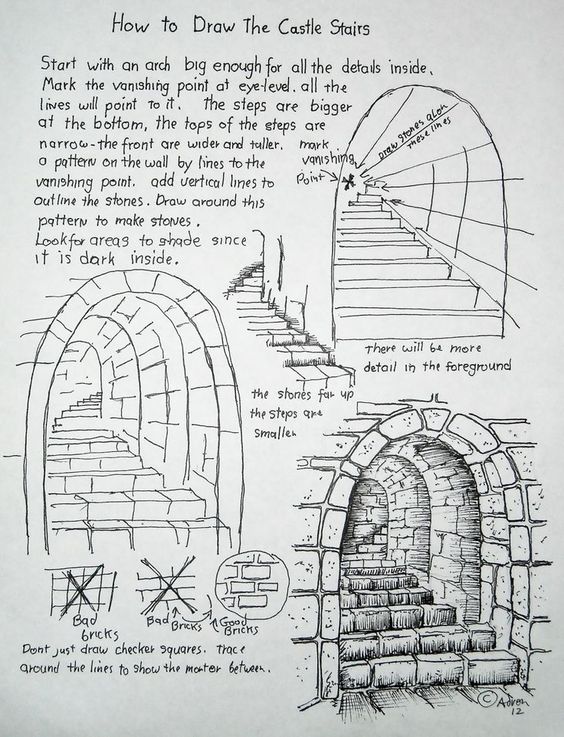 How to Draw The Castle Stairs
Start with an arch big enough for all the details inside.
Mark the vanishing point at eye-level. all the
lives will point to it. The steps are bigger
at the bottom, the tops of the steps are
narrow-the front are wider and taller.
a pattern on the wall by lines to the
vanishing point. add vertical lines to
outline the stones. Draw around this
pattern to make stones.
Look for areas to shade since
it is dark inside.
mark
vanishing
Point
Draw stones along
these lines
There will be more
detail in the foreground
the stones far up
the steps are
smaller
Bad
bricks
Bad
Bricks
Good
Bricks
Dont just draw checker squares. Trace
around the lines to show the morter between.
© Adron
12